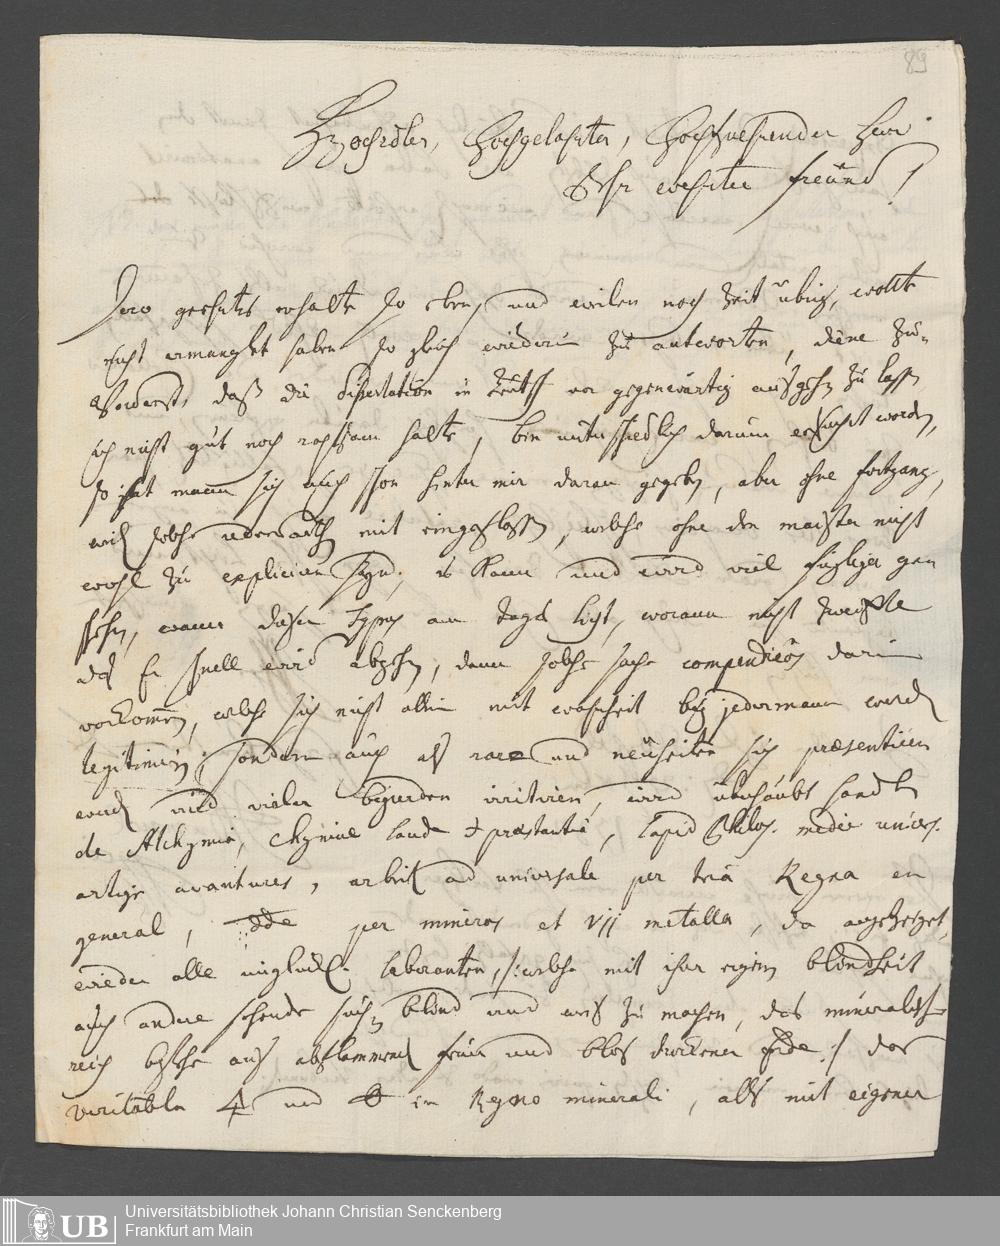 89
HochEdler, Hochgelahrter, Hochzuehrender Herr
Sehr wehrter freünd!
Dero geehrtes erhalte so eben, und weilen noch Zeit übrig, wollte
nicht ermanglet haben so gleich wiederum zu antworten, diene zu-
Vorderst, daß die dissertation in teütsch vor gegenwärtig ausgehen zu lassen
ich nicht gut noch rathsam halte, bin unterschiedlich darum ersucht worden,
so hat mann sich auch schon hinter mir daran gegeben, aber ohne fortgang,
weil solche redensarthen mit eingeschlossen, welche ohne den meister nicht
wohl zu expliciren seyn, es kann und wird viel füglicher gen
schehen, wann dieser am tages licht, woran nicht zweiffle
das Er schnell wird abgehen, dann solche sache compendieus darin
vorkommen, welche sich nicht allein mit wahrheit bey jedermann werden
legitimiren, sondern auch als rare und neüheiten sich præsentiren
und viele begierden irritiren, wird überhaubt handlen
de Alchymia, Chymiae laude et præstantia, Lapid Philos. medic univers.
artige avantures, arbeit ad universale per tria Regna en
general, per mineras et VII metalla, da angezeiget,
wieder alle unglückl. Laboranten, /: welche mit ihrer eigenen blindheit
auch andere sehende suchen blind und weis zu machen, das mineralische
reich bestehe aus abflammend feüer und blos druckener Erde :/ das
veritable 🜍 und 🜔 in Regno minerali, als mit eigener
UB
Universitätsbibliothek Johann Christian Senckenberg
Frankfurt am Main